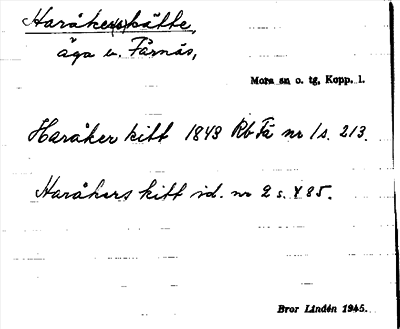 Haråker(s)kätte,
äga u. Färnäs,
Mora sn o. tg, Kopp. l.
Haråker kitt 1849 Rb Fä nr 1 s. 213.
Haråkers kitt id. nr 2 s. 485.
Bror Lindén 1945.